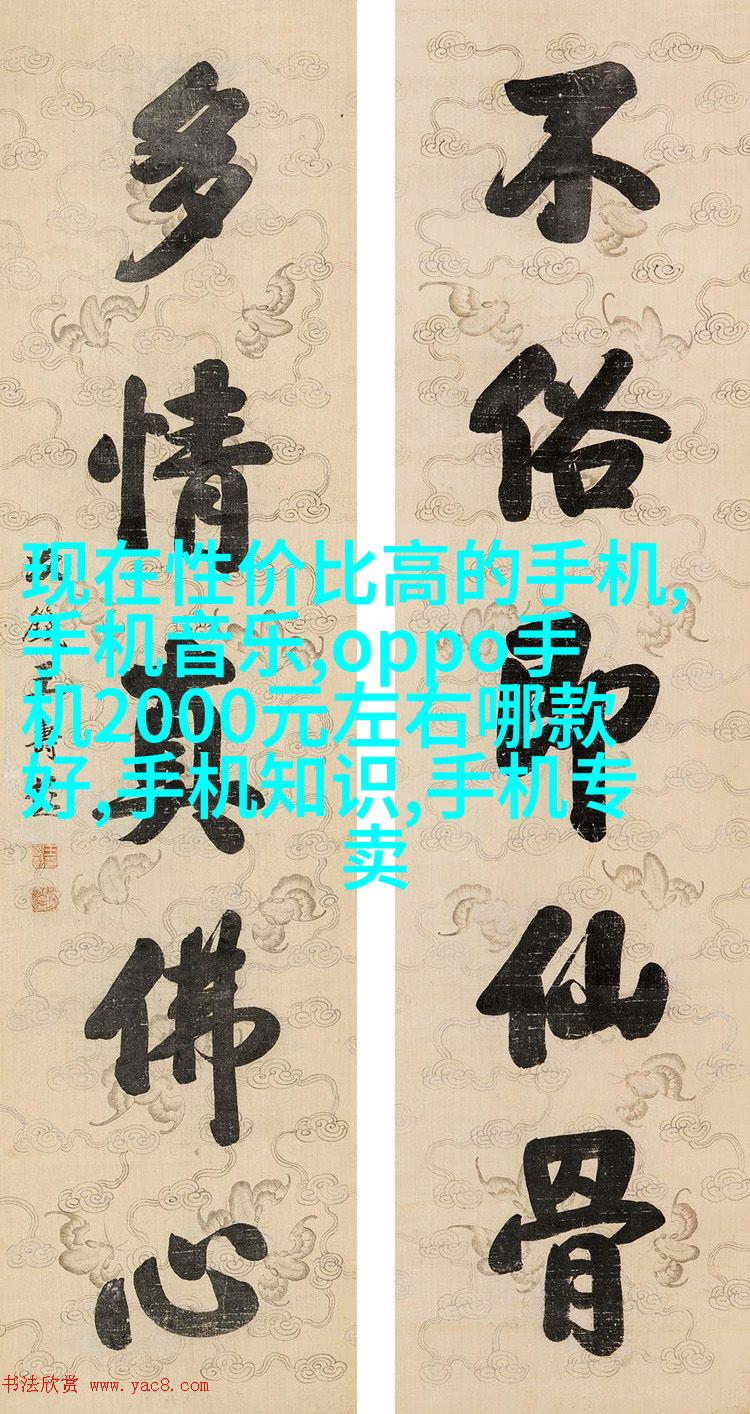 不俗即仙骨
多情真佛心
现在性价比高的手机,
手机音乐,oppo手
机2000元左右哪款
好,手机知识,手机专
卖
书法欣赏 www.yac8.com